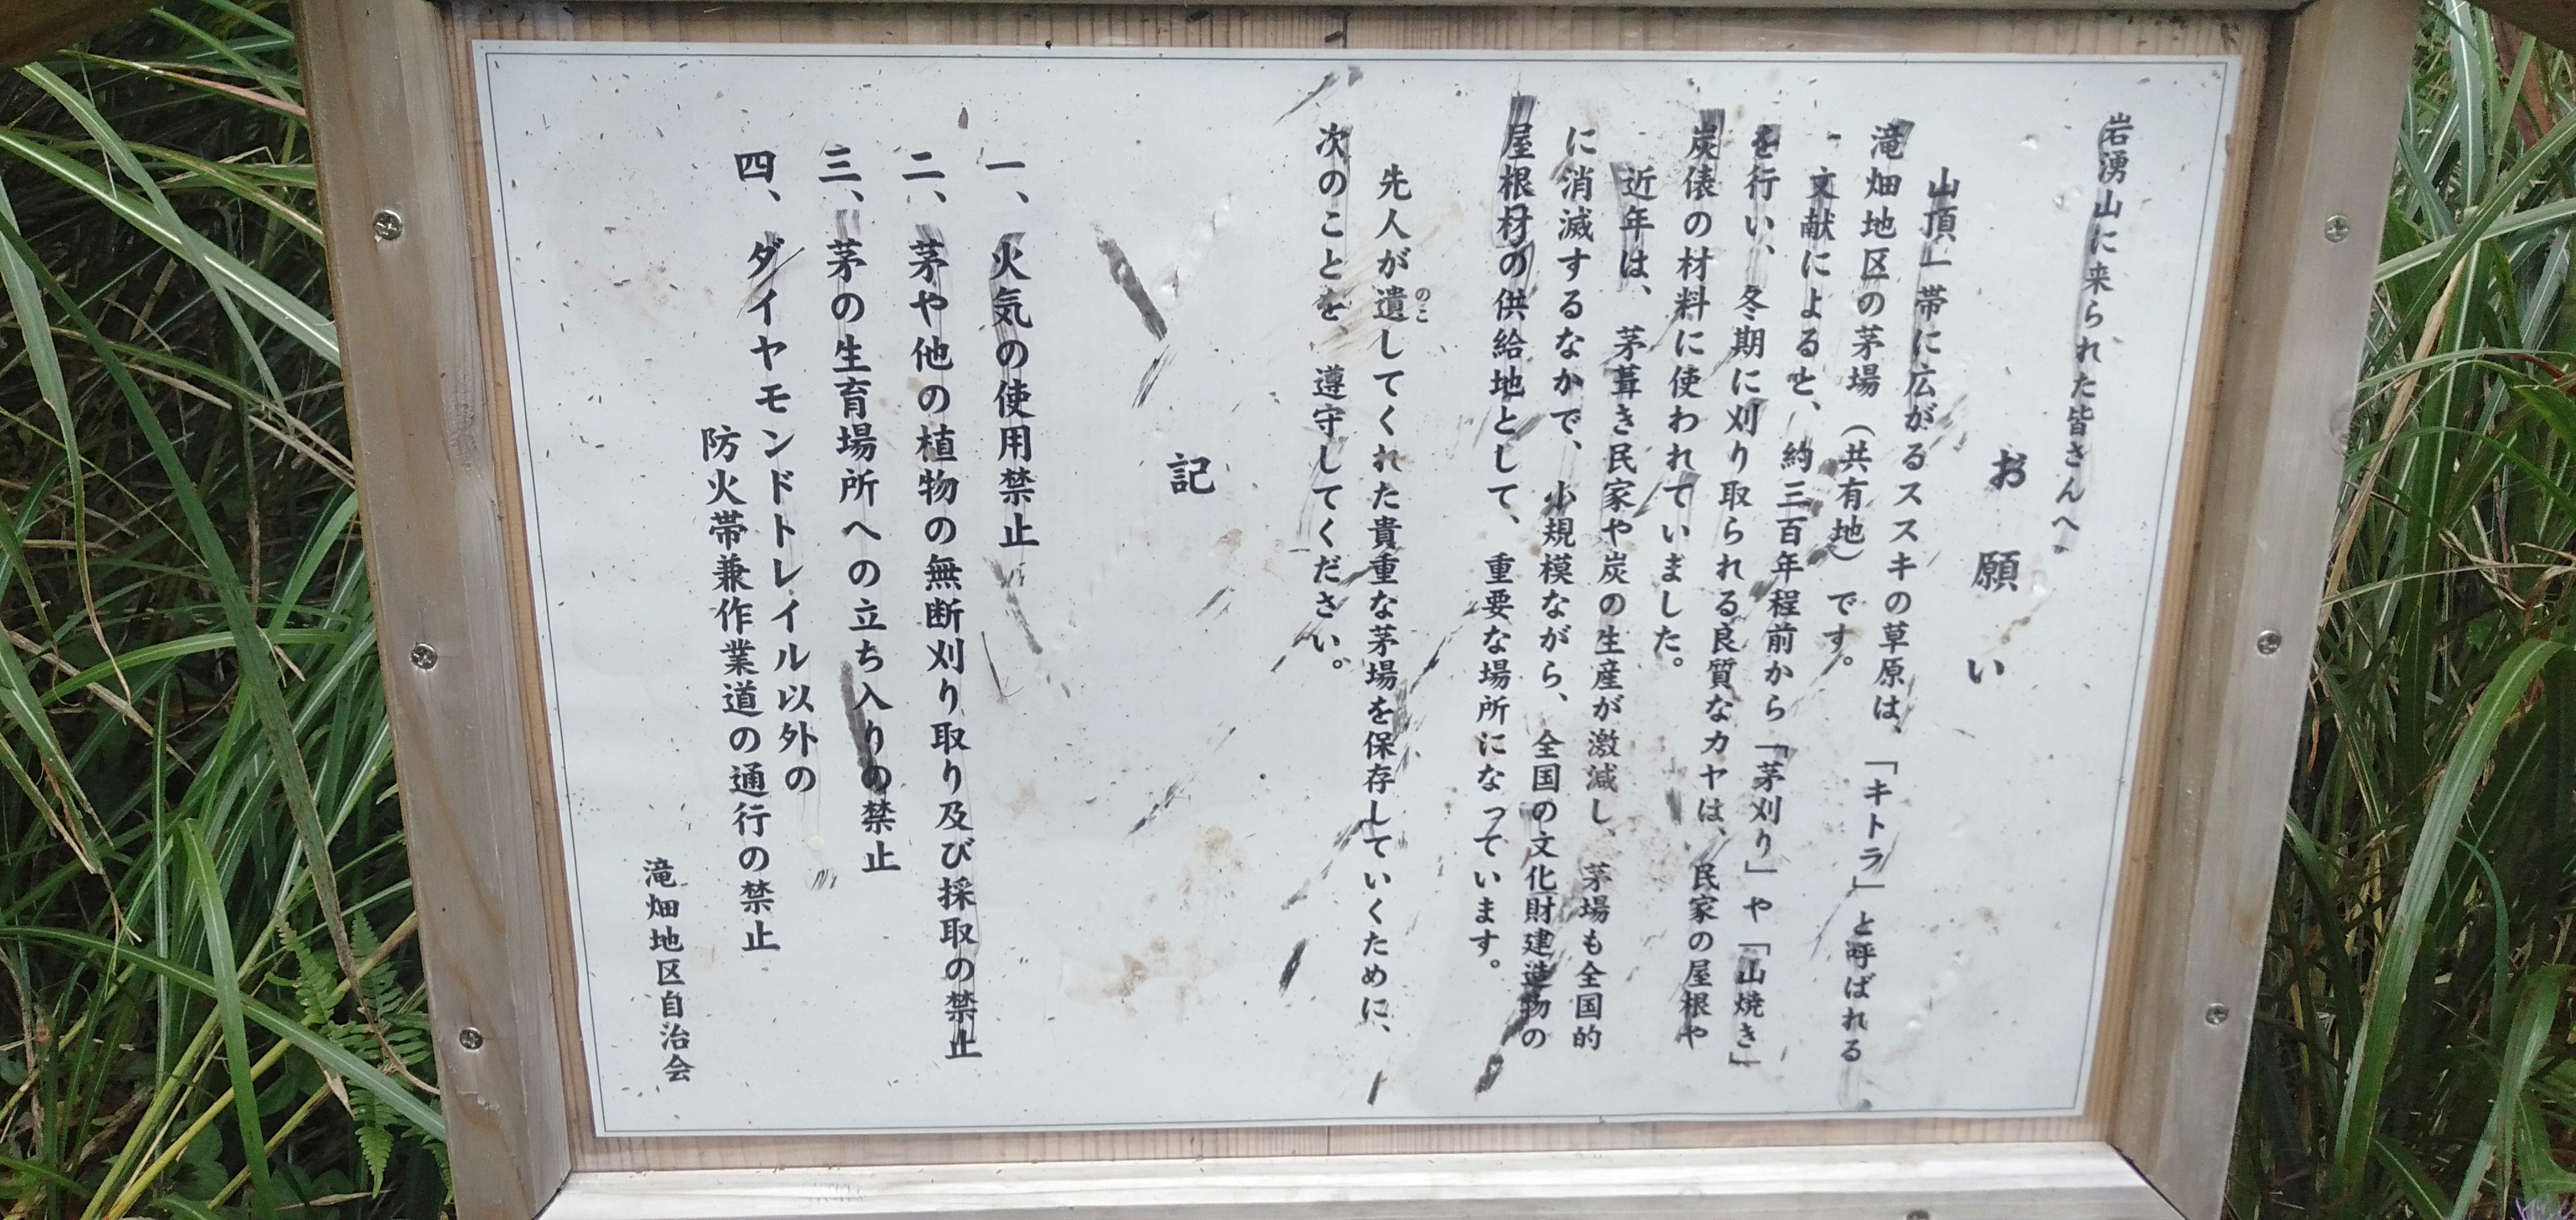 岩湧山に来られた皆さんへ
お願い
山頂一帯に広がるススキの草原は、「キトラ」と呼ばれる
滝畑地区の茅場（共有地）です。
文献によると、約三百年程前から「茅刈り」や「山焼き」
を行い、冬期に刈り取られる良質なカヤは、民家の屋根や
炭俵の材料に使われていました。
近年は、茅葺き民家や炭の生産が激減し、茅場も全国的
に消滅するなかで、小規模ながら、全国の文化財建造物の
屋根材の供給地として、重要な場所になっています。
先人が遺のこしてくれた貴重な茅場を保存していくために、
次のことを、遵守してください。
記
一、火気の使用禁止
二、茅や他の植物の無断刈り取り及び採取の禁止
三、茅の生育場所への立ち入りの禁止
四、ダイヤモンドトレイル以外の
防火帯兼作業道の通行の禁止
滝畑地区自治会